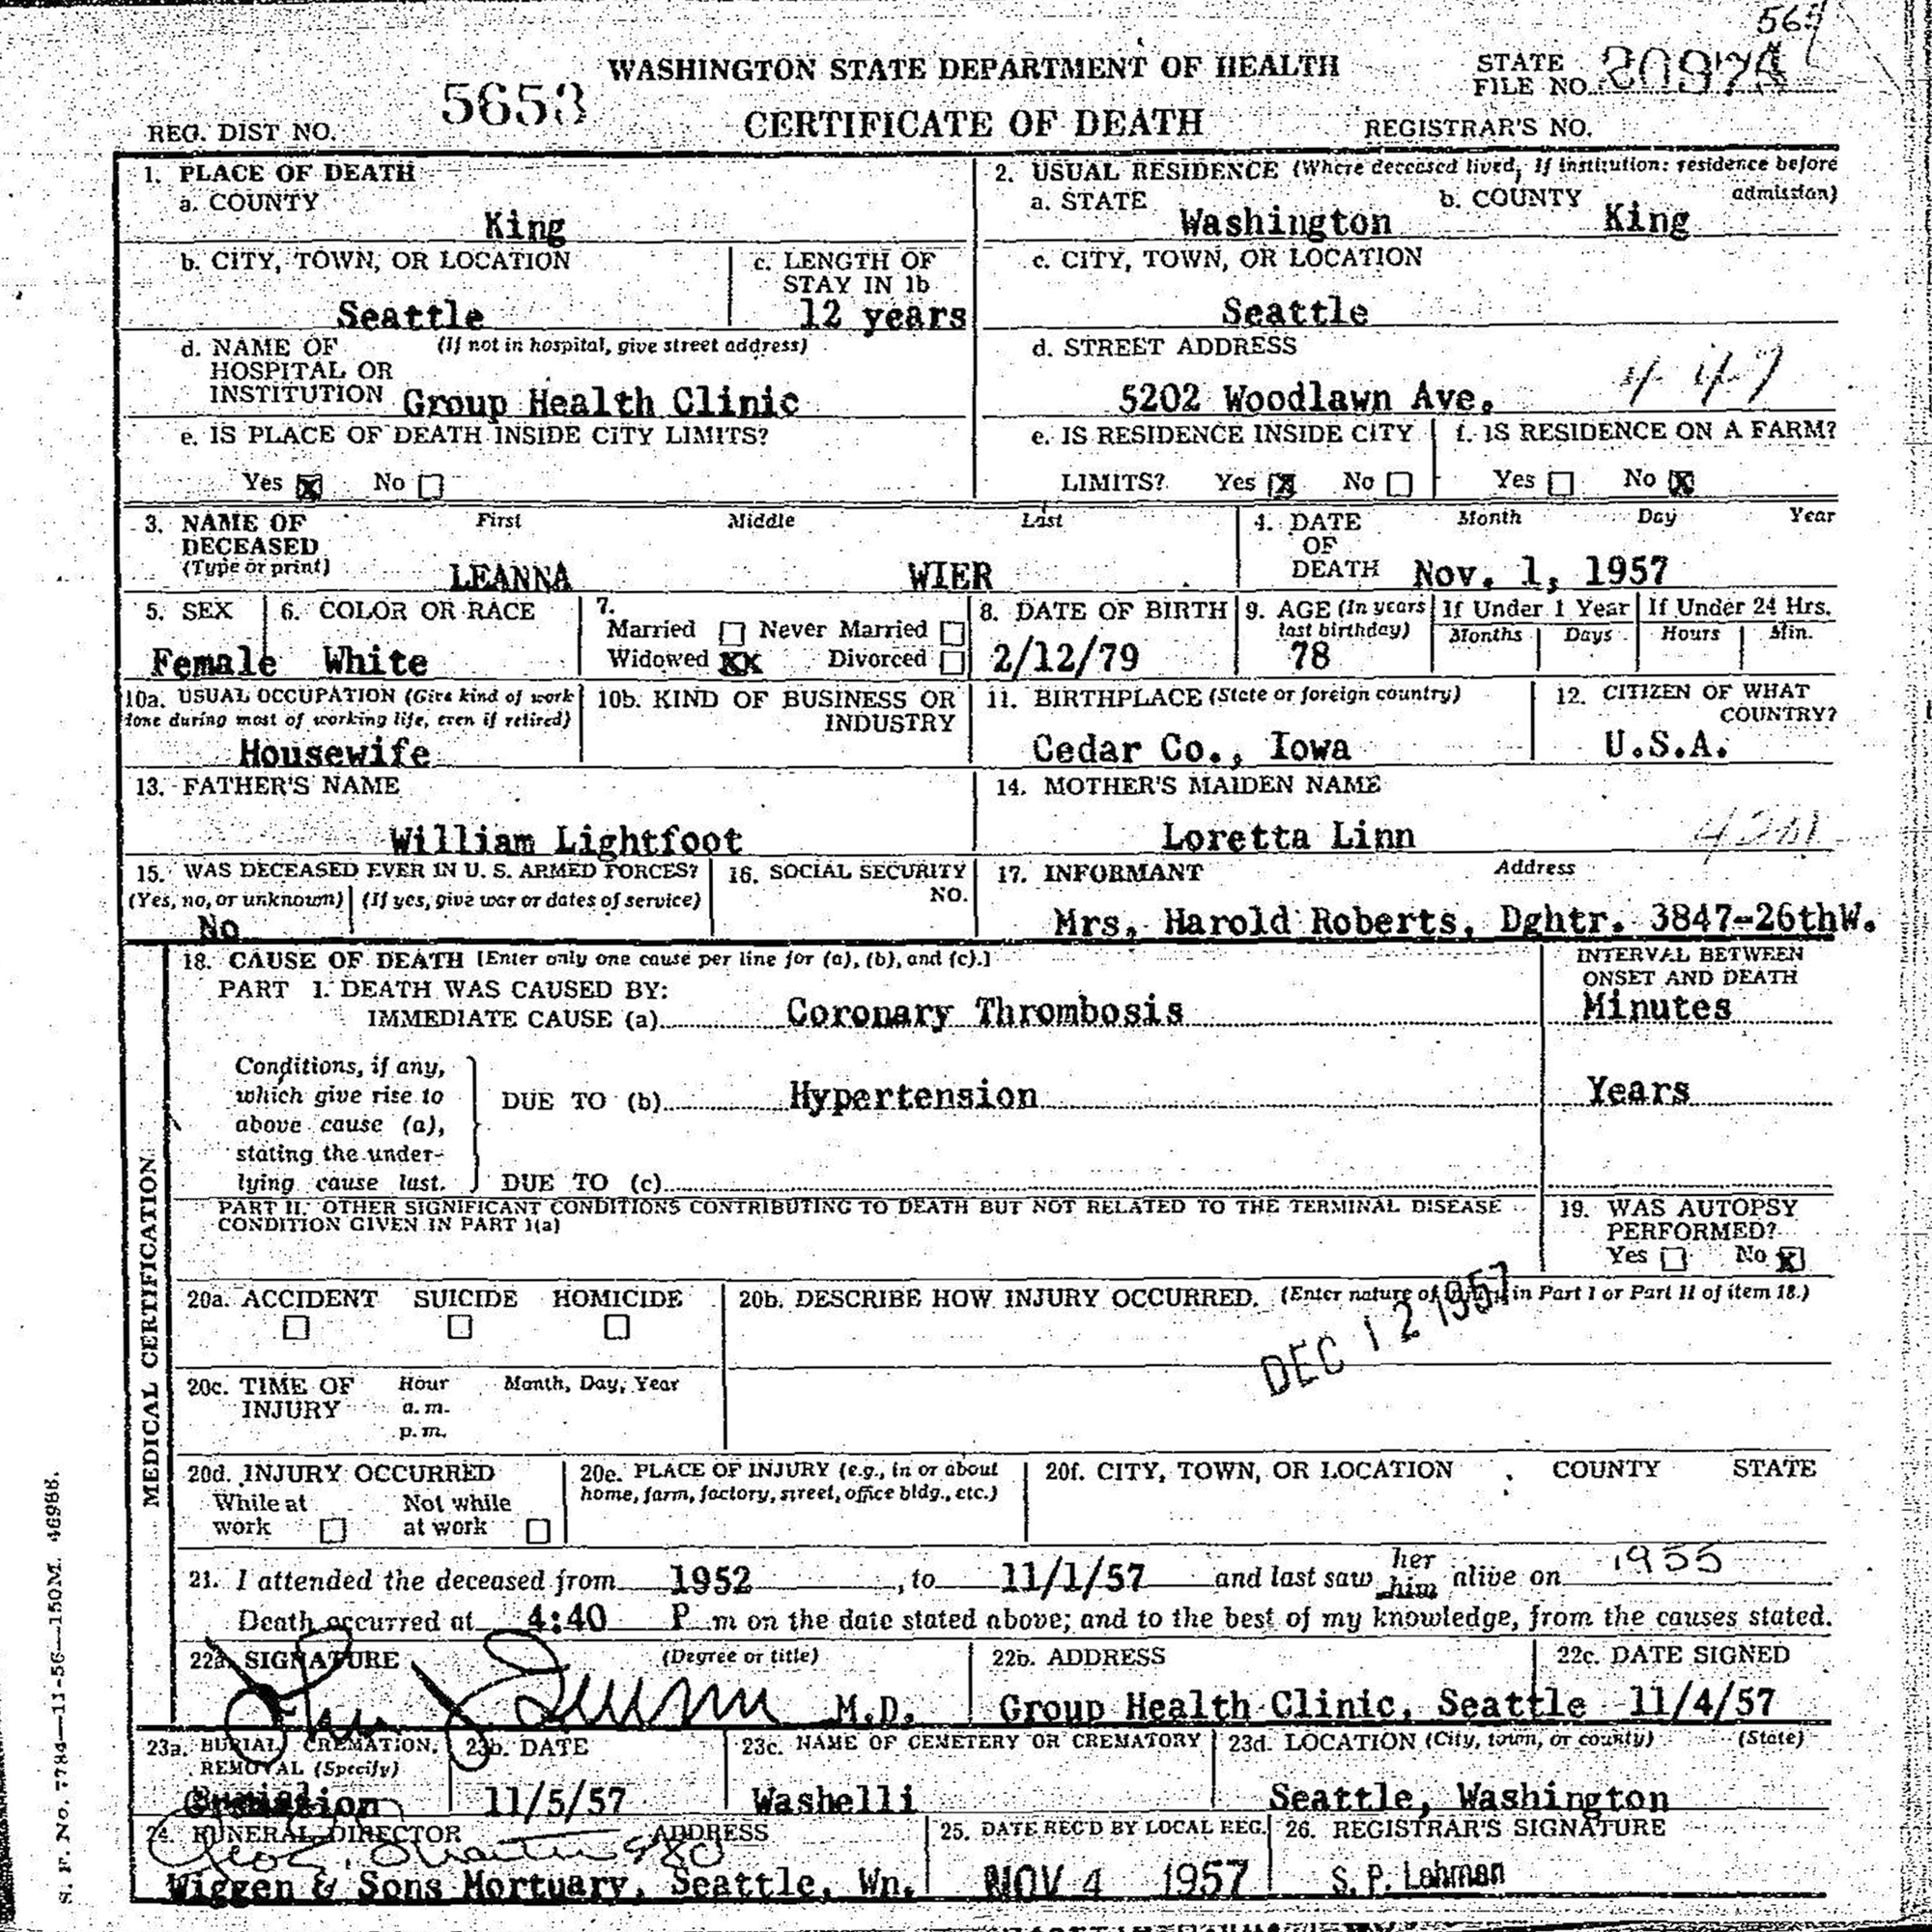 565
WASHINGTON STATE DEPARTMENT OF HEALTH
STATE FILE NO. 20974
5653
CERTIFICATE OF DEATH
REG. DIST NO.
REGISTRAR'S NO.
1. PLACE OF DEATH
a. COUNTY
King
2. USUAL RESIDENCE (Where deceased lived, If institution: residence before admission)
a. STATE
Washington
b. COUNTY
King
b. CITY, TOWN, OR LOCATION
Seattle
c. LENGTH OF STAY IN 1b
12 years
c. CITY, TOWN, OR LOCATION
Seattle
d. NAME OF HOSPITAL OR INSTITUTION
(If not in hospital, give street address)
Group Health Clinic
d. STREET ADDRESS
5202 Woodlawn Ave.
447
e. IS PLACE OF DEATH INSIDE CITY LIMITS?
Yes X No
e. IS RESIDENCE INSIDE CITY LIMITS? Yes X No
f. IS RESIDENCE ON A FARM?
Yes No X
3. NAME OF DECEASED (Type or print)
First Middle Last
LEANNA WIER
4. DATE OF DEATH
Month Day Year
Nov. 1, 1957
5. SEX
Female
6. COLOR OR RACE
White
7.
Married Never Married
Widowed XX Divorced
8. DATE OF BIRTH
2/12/79
9. AGE (In years last birthday)
78
If Under 1 Year
Months Days
If Under 24 Hrs.
Hours Min.
10a. USUAL OCCUPATION (Give kind of work done during most of working life, even if retired)
Housewife
10b. KIND OF BUSINESS OR INDUSTRY
11. BIRTHPLACE (State or foreign country)
Cedar Co., Iowa
12. CITIZEN OF WHAT COUNTRY?
U.S.A.
13. FATHER'S NAME
William Lightfoot
14. MOTHER'S MAIDEN NAME
Loretta Linn
15. WAS DECEASED EVER IN U. S. ARMED FORCES?
(Yes, no, or unknown) (If yes, give war or dates of service)
No
16. SOCIAL SECURITY NO.
17. INFORMANT Address
Mrs. Harold Roberts, Dghtr. 3847-26thW.
MEDICAL CERTIFICATION
18. CAUSE OF DEATH [Enter only one cause per line for (a), (b), and (c).]
INTERVAL BETWEEN ONSET AND DEATH
PART I. DEATH WAS CAUSED BY:
IMMEDIATE CAUSE (a) Coronary Thrombosis Minutes
Conditions, if any, which give rise to above cause (a), stating the underlying cause last.
DUE TO (b) Hypertension Years
DUE TO (c)
PART II. OTHER SIGNIFICANT CONDITIONS CONTRIBUTING TO DEATH BUT NOT RELATED TO THE TERMINAL DISEASE CONDITION GIVEN IN PART I(a)
19. WAS AUTOPSY PERFORMED?
Yes No X
20a. ACCIDENT SUICIDE HOMICIDE
20b. DESCRIBE HOW INJURY OCCURRED. (Enter nature of injury in Part I or Part II of item 18.)
DEC 12 1957
20c. TIME OF INJURY
Hour Month, Day, Year
a. m.
p. m.
20d. INJURY OCCURRED
While at work Not while at work
20e. PLACE OF INJURY (e.g., in or about home, farm, factory, street, office bldg., etc.)
20f. CITY, TOWN, OR LOCATION COUNTY STATE
21. I attended the deceased from 1952, to 11/1/57 and last saw her him alive on 1955
Death occurred at 4:40 P m on the date stated above; and to the best of my knowledge, from the causes stated.
22a. SIGNATURE (Degree or title)
M.D.
22b. ADDRESS
Group Health Clinic, Seattle
22c. DATE SIGNED
11/4/57
23a. BURIAL, CREMATION, REMOVAL (Specify)
Cremation
23b. DATE
11/5/57
23c. NAME OF CEMETERY OR CREMATORY
Washelli
23d. LOCATION (City, town, or county) (State)
Seattle, Washington
24. FUNERAL DIRECTOR ADDRESS
Wiggen & Sons Mortuary, Seattle, Wn.
25. DATE REC'D BY LOCAL REG.
NOV 4 1957
26. REGISTRAR'S SIGNATURE
S. P. Lehman
S. F. No. 7784—11-56—150M. 46988.